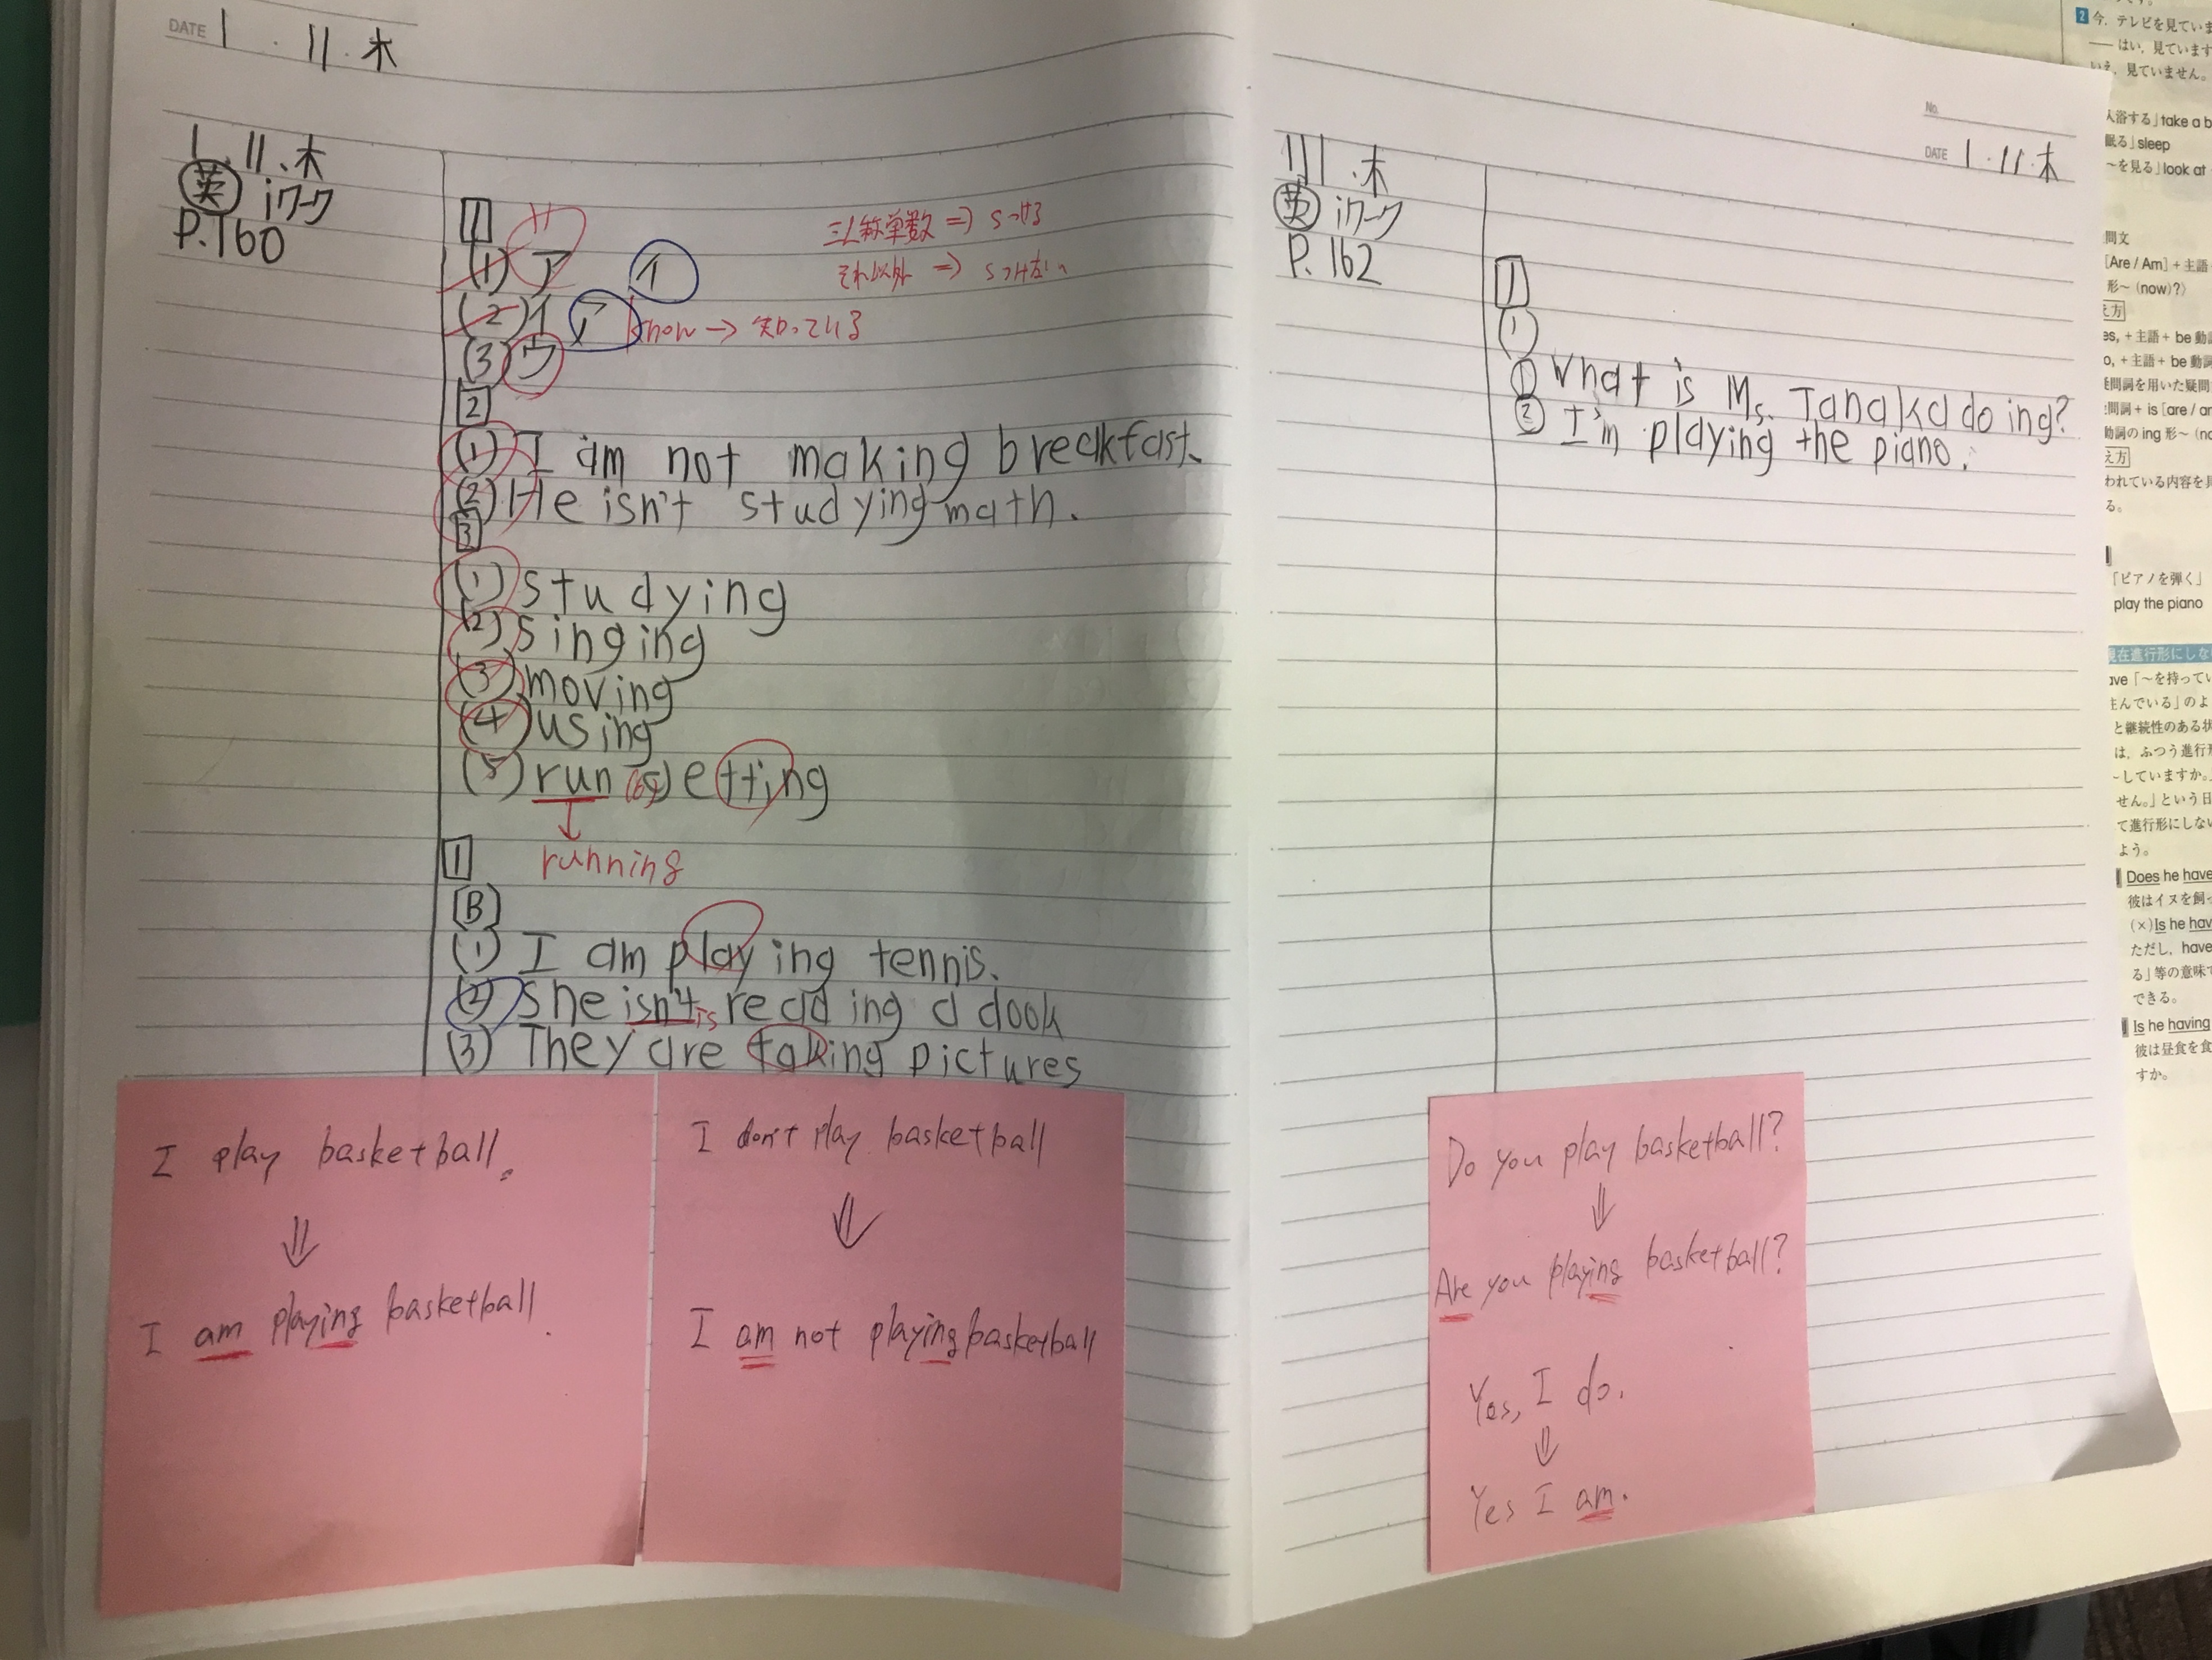 DATE 1 . 11 . 木
1. 11. 木
英 iワーク
P.160
1
(1) ア サ
イ
三人称単数 ⇒ sつける
それ以外 ⇒ sつけない
(2) イ ア know → 知っている
(3) ウ
2
(1) I am not making breakfast.
(2) He isn't studying math.
3
(1) studying
(2) singing
(3) moving
(4) using
(5) run (6) setting
running
1
[B]
(1) I am playing tennis.
(2) She isn't is reading a dook
(3) They are taking pictures
I play basketball.
⇓
I am playing basketball.
I don't play basketball
⇓
I am not playing basketball
No.
DATE 1 . 11 . 木
1 11 . 木
英 iワーク
P. 162
1
(1)
① What is Ms. Tanaka doing?
② I'm playing the piano.
Do you play basketball?
⇓
Are you playing basketball?
Yes, I do.
⇓
Yes I am.
2 今，テレビを見ていま
── はい，見ています
見ていません。
入浴する」take a b
眠る」sleep
～を見る」look at
問文
[Are / Am] + 主語
形～ (now)?)
え方
es, + 主語 + be 動詞
o, + 主語 + be 動詞
疑問詞を用いた疑問
問詞 + is [are / ar
動詞の ing 形～ (no
え方
われている内容を具
る。
「ピアノを弾く」
play the piano
現在進行形にしな
ave「～を持ってい
住んでいる」のよ
と継続性のある状
は，ふつう進行形
～していますか。
せん。」という日
て進行形にしない
よう。
Does he have
彼はイヌを飼っ
(×)Is he hav
ただし，have
る」等の意味で
できる。
Is he having
彼は昼食を食
すか。